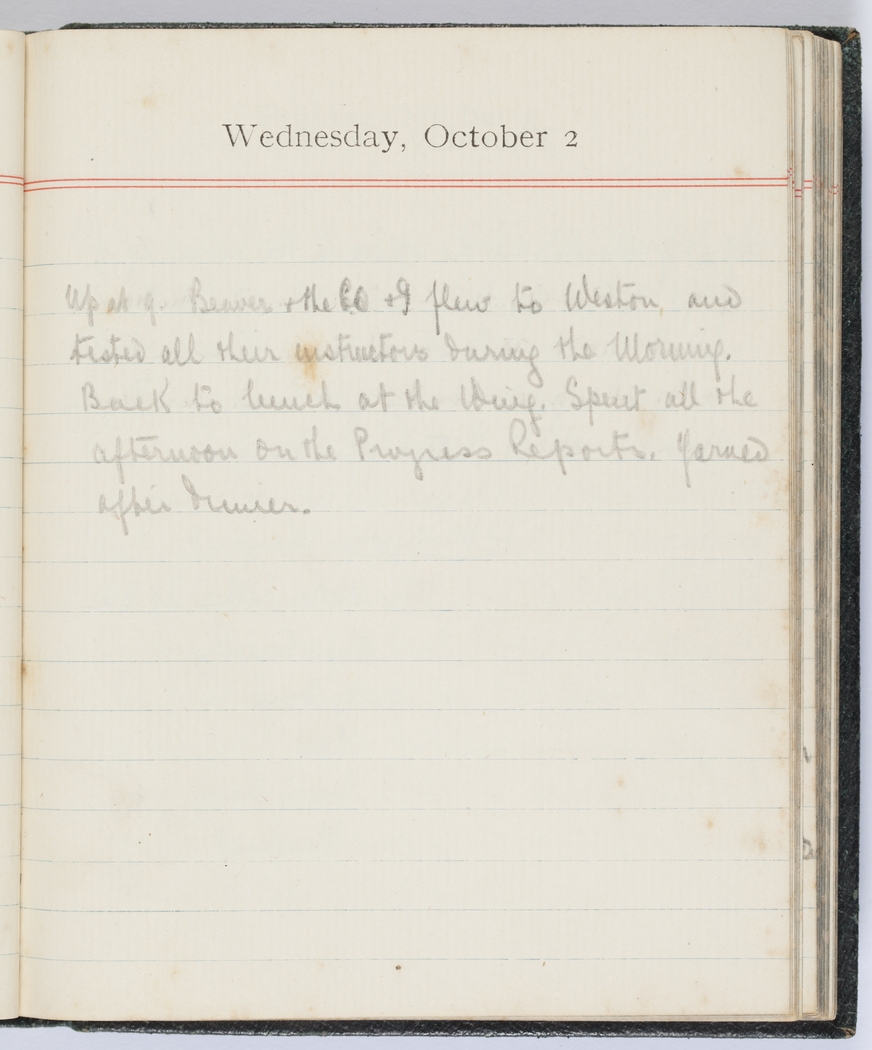 Wednesday, October 2
Up at 9. Beaver + the CO + I flew to Weston, and
tested all their instructors during the Morning.
Back to lunch at the Wing. Spent all the
afternoon on the Progress Reports. Yarned
after dinner.